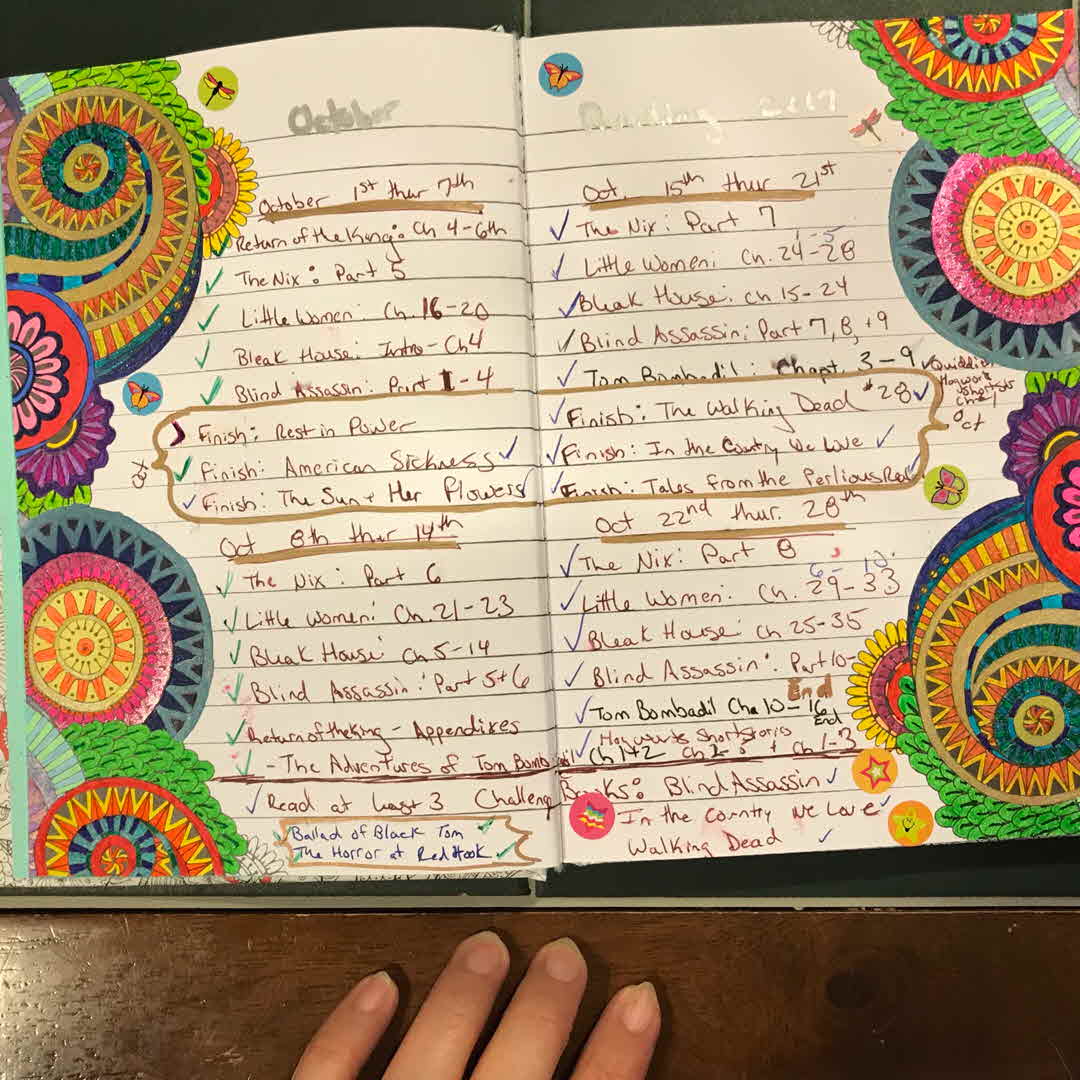 October
October 1st thur 7th
Return of the King: Ch 4-6th
The Nix: Part 5
Little Women: Ch. 16-20
Bleak House: Intro-Ch4
Blind Assassin: Part 1-4
Finish: Rest in Power
Finish: American Sickness
Finish: The Sun + Her Flowers
Oct 8th thur 14th
The Nix: Part 6
Little Women: Ch. 21-23
Bleak House: Ch 5-14
Blind Assassin: Part 5+6
Return of the King - Appendixes
- The Adventures of Tom Bombadil
Read at Last 3 Challeng Books: Blind Assassin
Ballad of Black Tom
The Horror at Red Hook
Reading
Oct. 15th thur 21st
The Nix: Part 7
1-5
Little Women: Ch. 24-28
Bleak House: Ch 15-24
Blind Assassin: Part 7, 8, +9
Tom Bombadil: Chapt. 3-9
Finish: The Walking Dead #28
Finish: In the Country We Love
Finish: Tales from the Perlious Real
Hogwarts
Shortsts
Ch 1
Oct
Oct 22nd thur. 28th
The Nix: Part 8
6-10
Little Women: Ch. 29-33
Bleak House: Ch 25-35
Blind Assassin: Part 10-
End
Tom Bombadil Cha 10-16
End
Hogwarts Shortstories
Ch 1+2 Ch 1- + Ch 1-3
In the Country We Love
Walking Dead